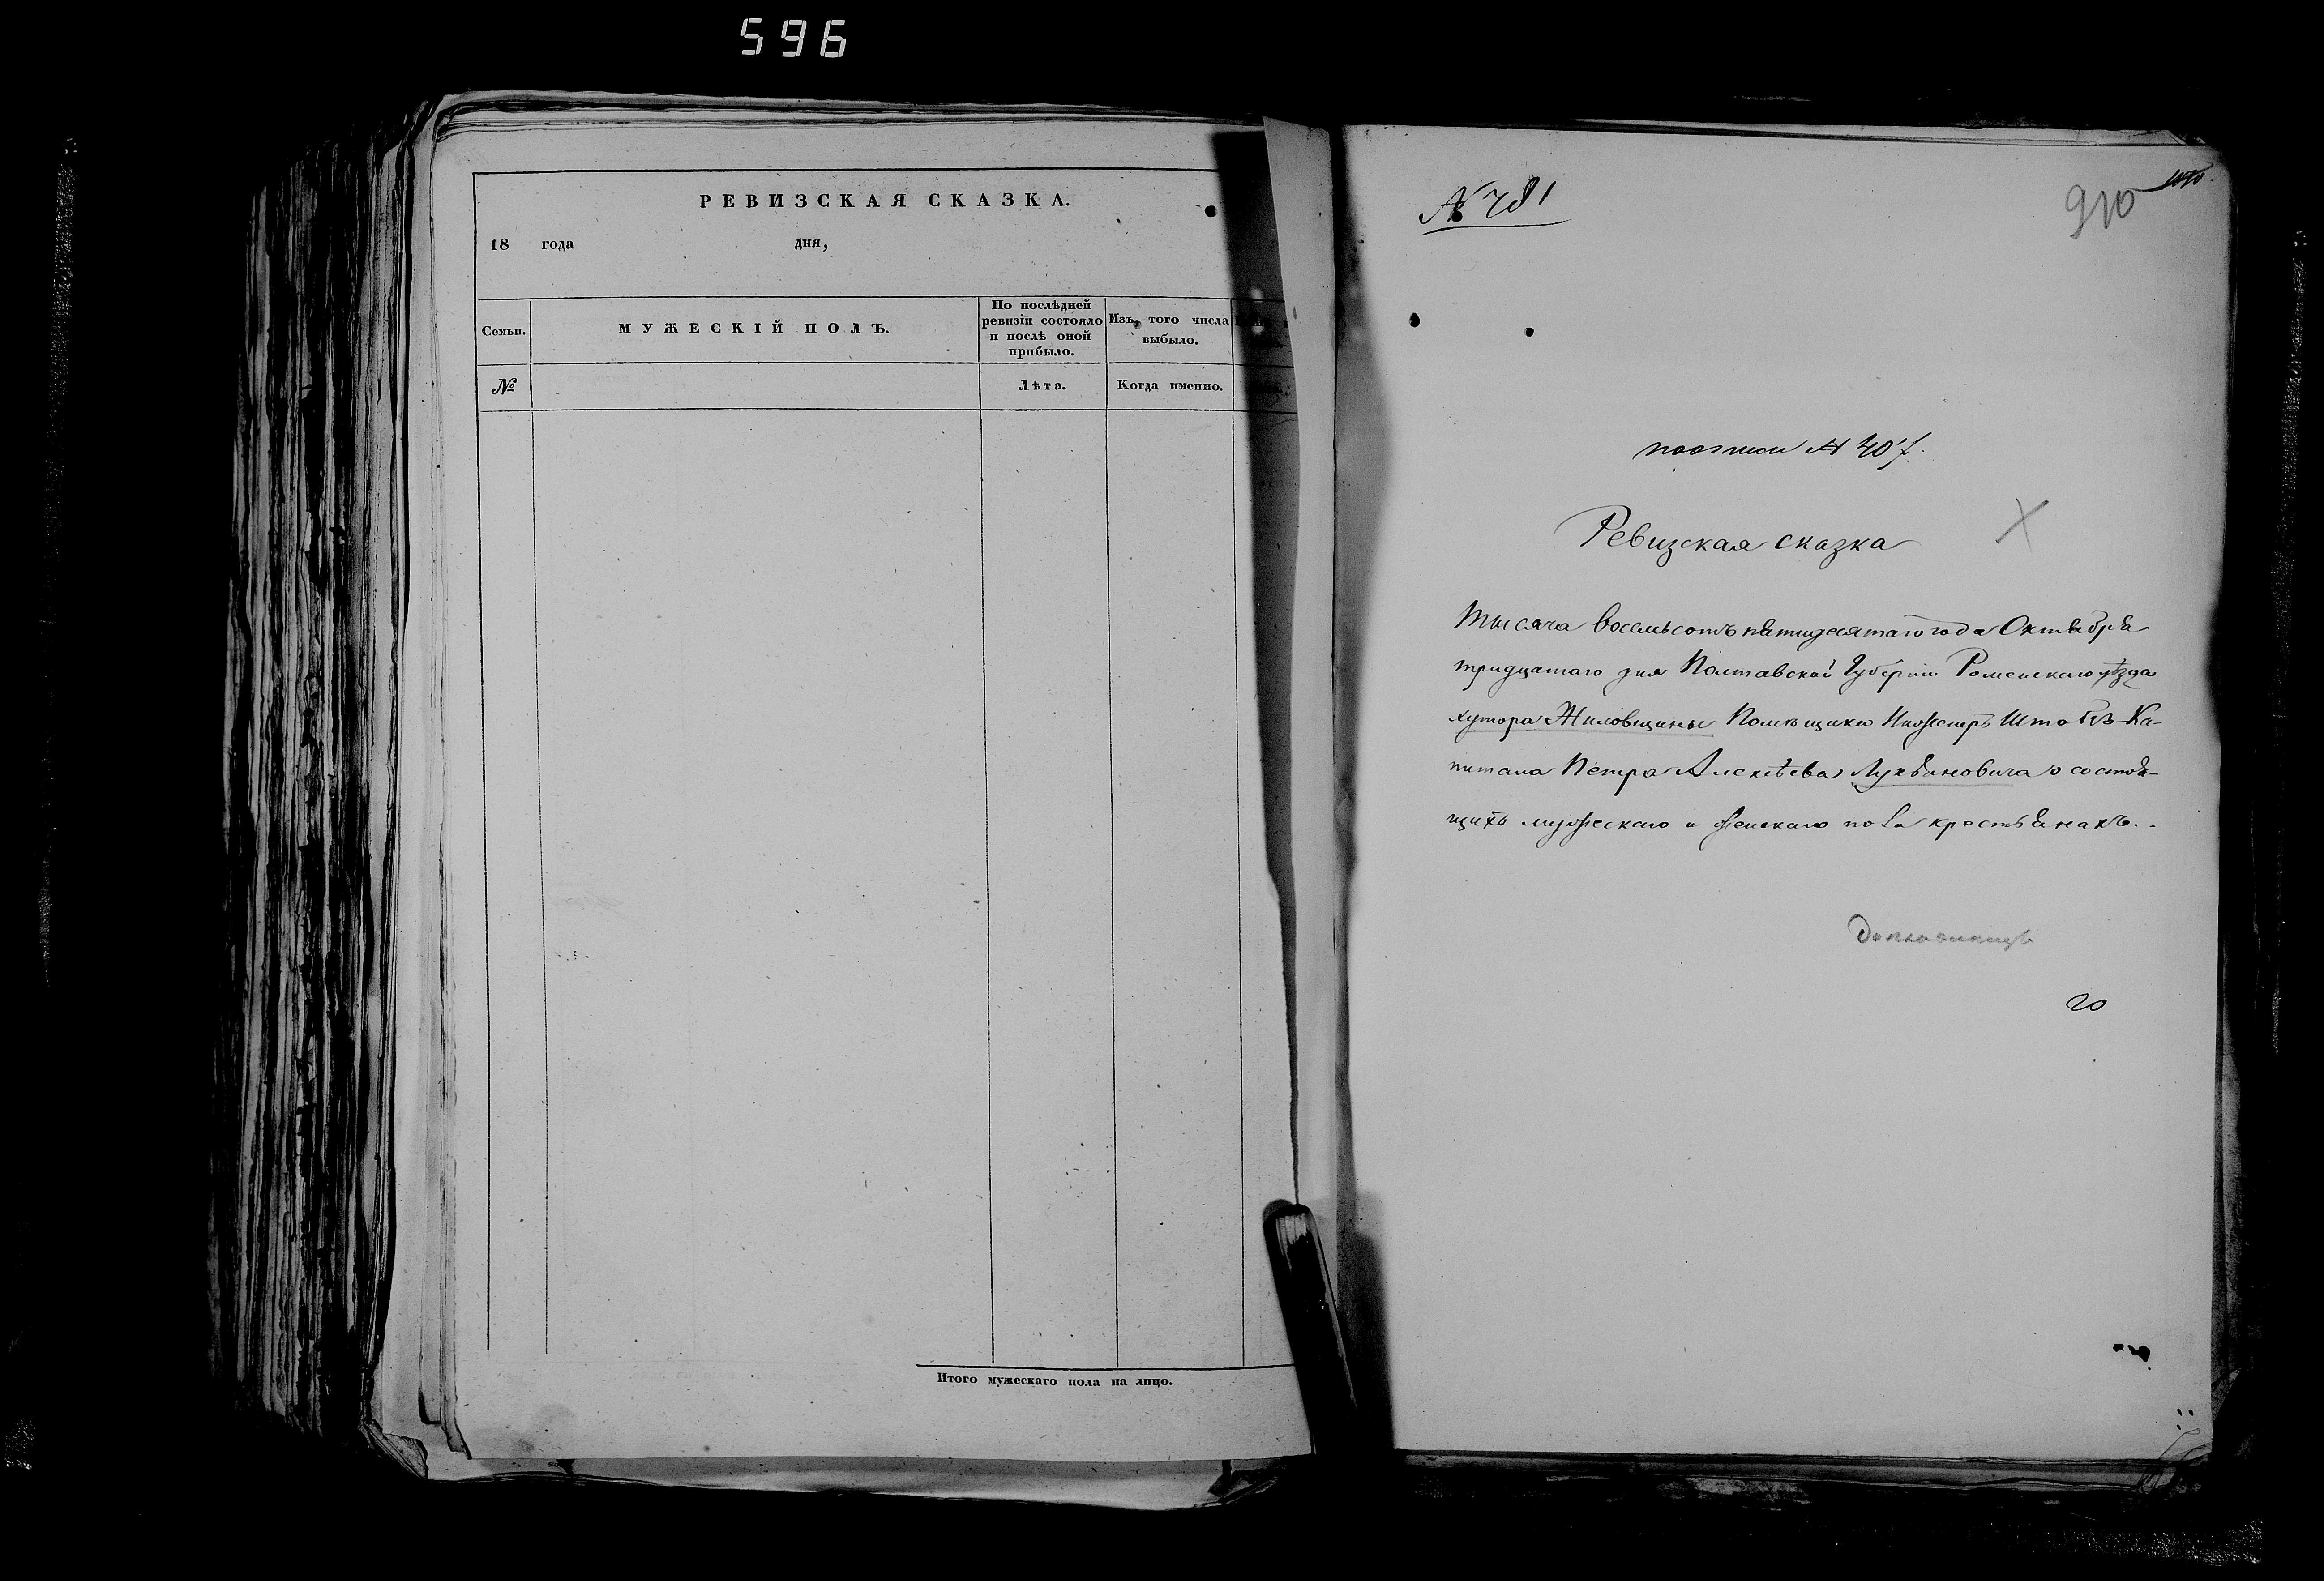 596
РЕВИЗСКАЯ СКАЗКА.
18 года дня,
Семьи.
МУЖЕСКІЙ ПОЛЪ.
По послѣдней
ревизіи состояло
и послѣ оной
прибыло.
Изъ того числа
выбыло.
№
Лѣта.
Когда именно.
Итого мужескаго пола на лицо.
№ 781
910
по описи № 407.
Ревизская сказка
Тысяча восемьсотъ пятидесятаго года Октября
тридцатаго дня Полтавской Губерніи Роменскаго уѣзда
хутора Жиловщины Помѣщика Инженеръ Штабсъ-Ка-
питана Петра Алексѣева Лукьяновича о состоя-
щихъ мужескаго и женскаго пола крестьянахъ.
20